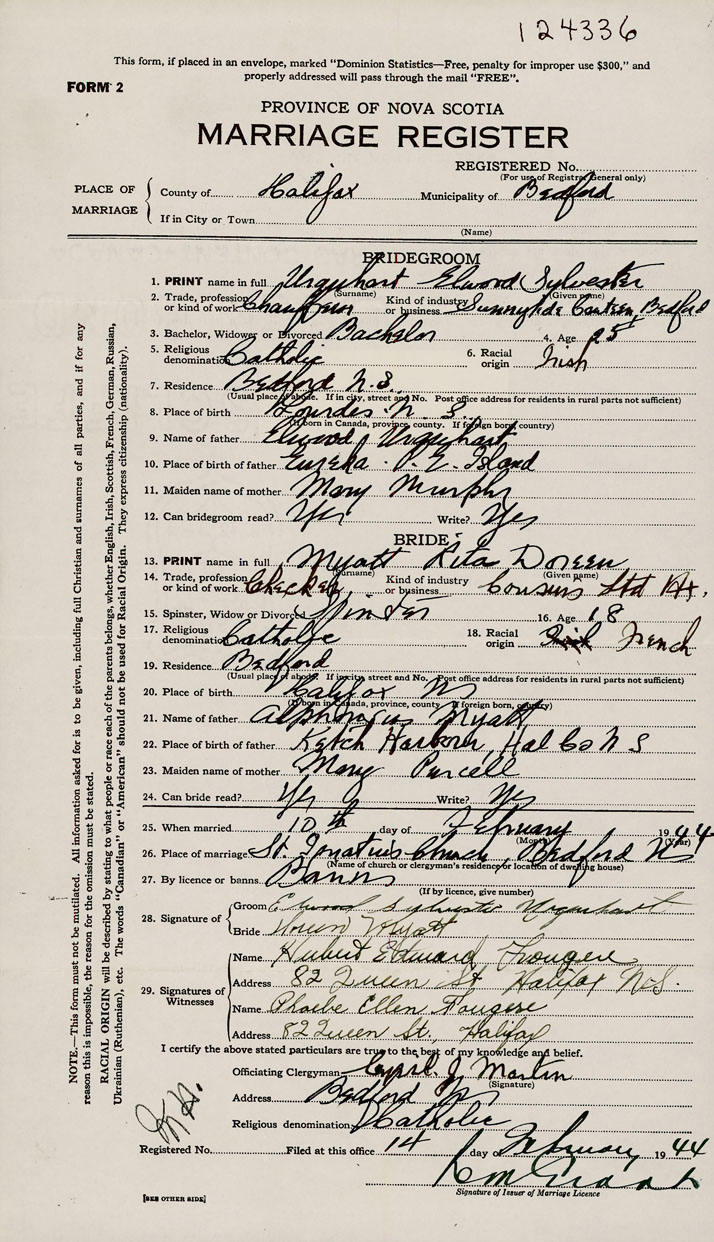 124336
This form, if placed in an envelope, marked "Dominion Statistics—Free, penalty for improper use $300," and
properly addressed will pass through the mail "FREE".
FORM 2
PROVINCE OF NOVA SCOTIA
MARRIAGE REGISTER
REGISTERED No.
(For use of Registrar General only)
PLACE OF MARRIAGE
County of Halifax Municipality of Bedford
If in City or Town
(Name)
BRIDEGROOM
1. PRINT name in full Urquhart Elwood Sylvester
(Surname) (Given name)
2. Trade, profession or kind of work Chauffeur Kind of industry or business Sunnyside Canteen, Bedford
3. Bachelor, Widower or Divorced Bachelor 4. Age 25
5. Religious denomination Catholic 6. Racial origin Irish
7. Residence Bedford N.S.
(Usual place of abode. If in city, street and No. Post office address for residents in rural parts not sufficient)
8. Place of birth Lourdes N. S.
(If born in Canada, province, county. If foreign born, country)
9. Name of father Elwood J Urquhart
10. Place of birth of father Eureka P. E. Island
11. Maiden name of mother Mary Murphy
12. Can bridegroom read? Yes Write? Yes
BRIDE
13. PRINT name in full Myatt Rita Doreen
(Surname) (Given name)
14. Trade, profession or kind of work Checker Kind of industry or business Cousins Ltd Hx.
15. Spinster, Widow or Divorced Spinster 16. Age 18
17. Religious denomination Catholic 18. Racial origin Irish French
19. Residence Bedford
(Usual place of abode. If in city, street and No. Post office address for residents in rural parts not sufficient)
20. Place of birth Halifax NS
(If born in Canada, province, county. If foreign born, country)
21. Name of father Alphonsus Myatt
22. Place of birth of father Ketch Harbour, Hal Co N S
23. Maiden name of mother Mary Purcell
24. Can bride read? Yes Write? Yes
25. When married 10th day of February 1944
(Month) (Year)
26. Place of marriage St. Ignatius Church, Bedford NS
(Name of church or clergyman's residence or location of dwelling house)
27. By licence or banns Banns
(If by licence, give number)
28. Signature of
Groom Elwood Sylvester Urquhart
Bride Doreen Myatt
29. Signatures of Witnesses
Name Hubert Edward Fougere
Address 82 Queen St Halifax N.S.
Name Phoebe Ellen Fougere
Address 82 Queen St., Halifax
I certify the above stated particulars are true to the best of my knowledge and belief.
Officiating Clergyman Cyril J Martin
(Signature)
Address Bedford NS
Religious denomination Catholic
Registered No. Filed at this office 14 day of February 1944
Signature of Issuer of Marriage Licence
[SEE OTHER SIDE]
NOTE.—This form must not be mutilated. All information asked for is to be given, including full Christian and surnames of all parties, and if for any
reason this is impossible, the reason for the omission must be stated.
RACIAL ORIGIN will be described by stating to what people or race each of the parents belongs, whether English, Irish, Scottish, French, German, Russian,
Ukrainian (Ruthenian), etc. The words "Canadian" or "American" should not be used for Racial Origin. They express citizenship (nationality).